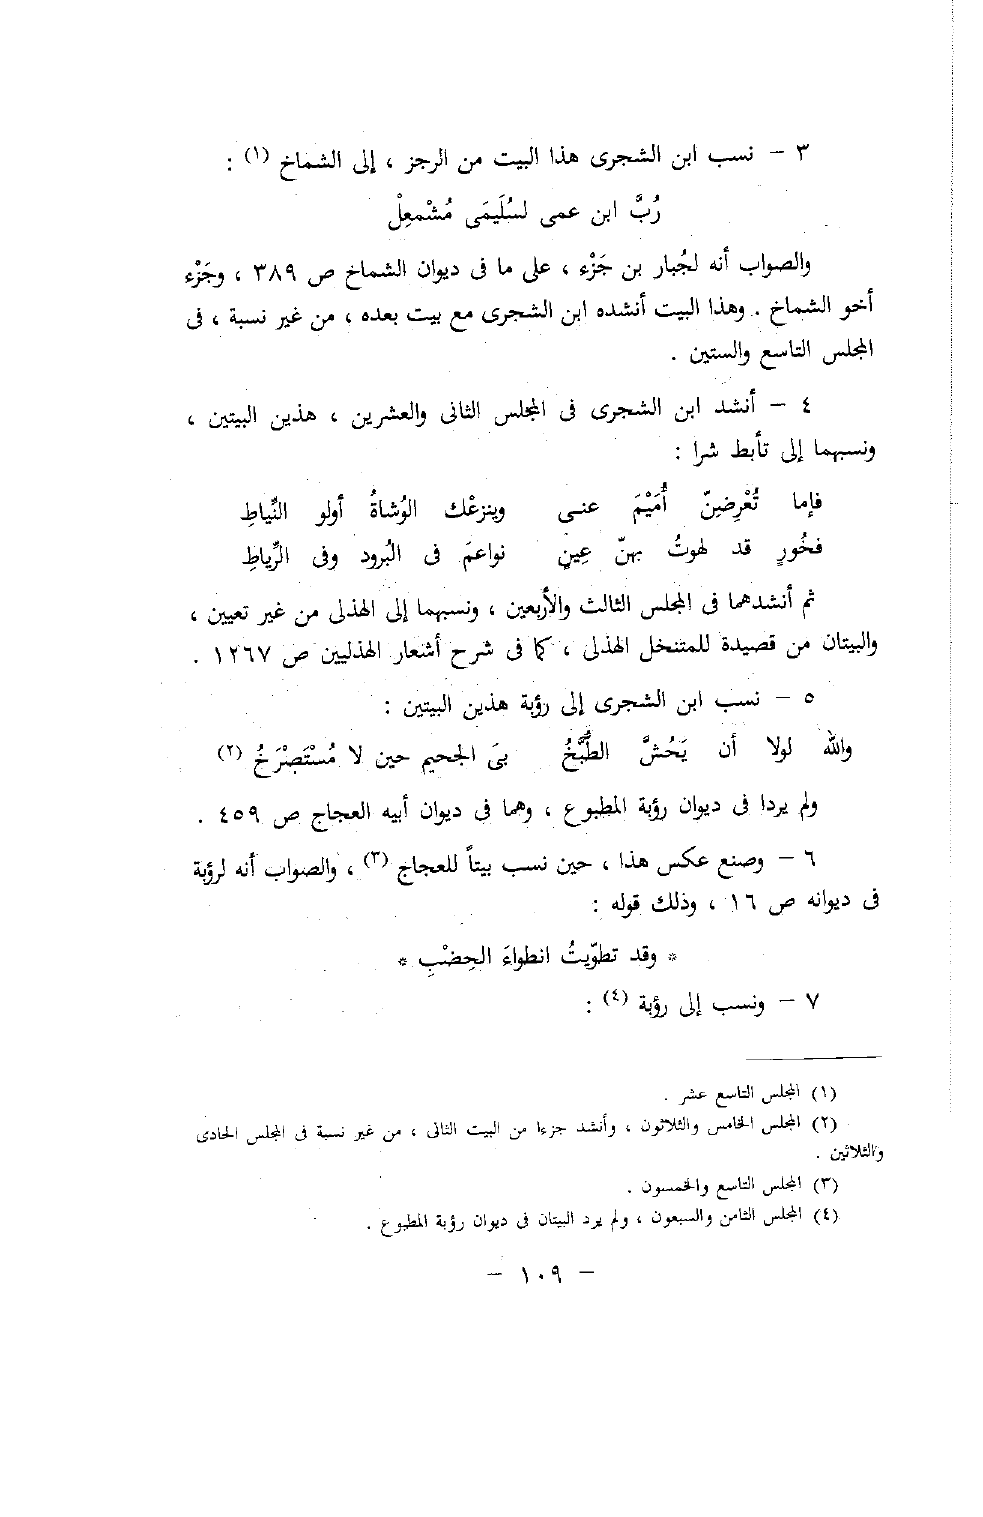 ٣ – نسب ابن الشجرى هذا البيت من الرجز ، إلى الشماخ (١) :
رُبَّ ابن عمى لسُلَيمَى مُشْمعِلْ
والصواب أنه لجُبار بن جَزْء ، على ما فى ديوان الشماخ ص ٣٨٩ ، وجَزْء
أخو الشماخ . وهذا البيت أنشده ابن الشجرى مع بيت بعده ، من غير نسبة ، فى
المجلس التاسع والستين .
٤ – أنشد ابن الشجرى فى المجلس الثانى والعشرين ، هذين البيتين ،
ونسبهما إلى تأبط شرا :
فإما تُعْرِضِنّ أُمَيْمَ عنى وينزعْك الوُشاةُ أولو النِّياطِ
فحُورٍ قد لهوتُ بهنّ عِينٍ نواعمَ فى البُرود وفى الرِّياطِ
ثم أنشدهما فى المجلس الثالث والأربعين ، ونسبهما إلى الهذلى من غير تعيين ،
والبيتان من قصيدة للمتنخل الهذلى ، كما فى شرح أشعار الهذليين ص ١٢٦٧ .
٥ – نسب ابن الشجرى إلى رؤبة هذين البيتين :
والله لولا أن يَحُشَّ الطُّبَّخُ بىَ الجحيم حين لا مُسْتَصْرَخُ (٢)
ولم يردا فى ديوان رؤبة المطبوع ، وهما فى ديوان أبيه العجاج ص ٤٥٩ .
٦ – وصنع عكس هذا ، حين نسب بيتاً للعجاج (٣) ، والصواب أنه لرؤبة
فى ديوانه ص ١٦ ، وذلك قوله :
* وقد تطوّيتُ انطواءَ الحِضْبِ *
٧ – ونسب إلى رؤبة (٤) :
(١) المجلس التاسع عشر .
(٢) المجلس الخامس والثلاثون ، وأنشد جزءا من البيت الثانى ، من غير نسبة فى المجلس الحادى
والثلاثين .
(٣) المجلس التاسع والخمسون .
(٤) المجلس الثامن والسبعون ، ولم يرد البيتان فى ديوان رؤبة المطبوع .
– ١٠٩ –